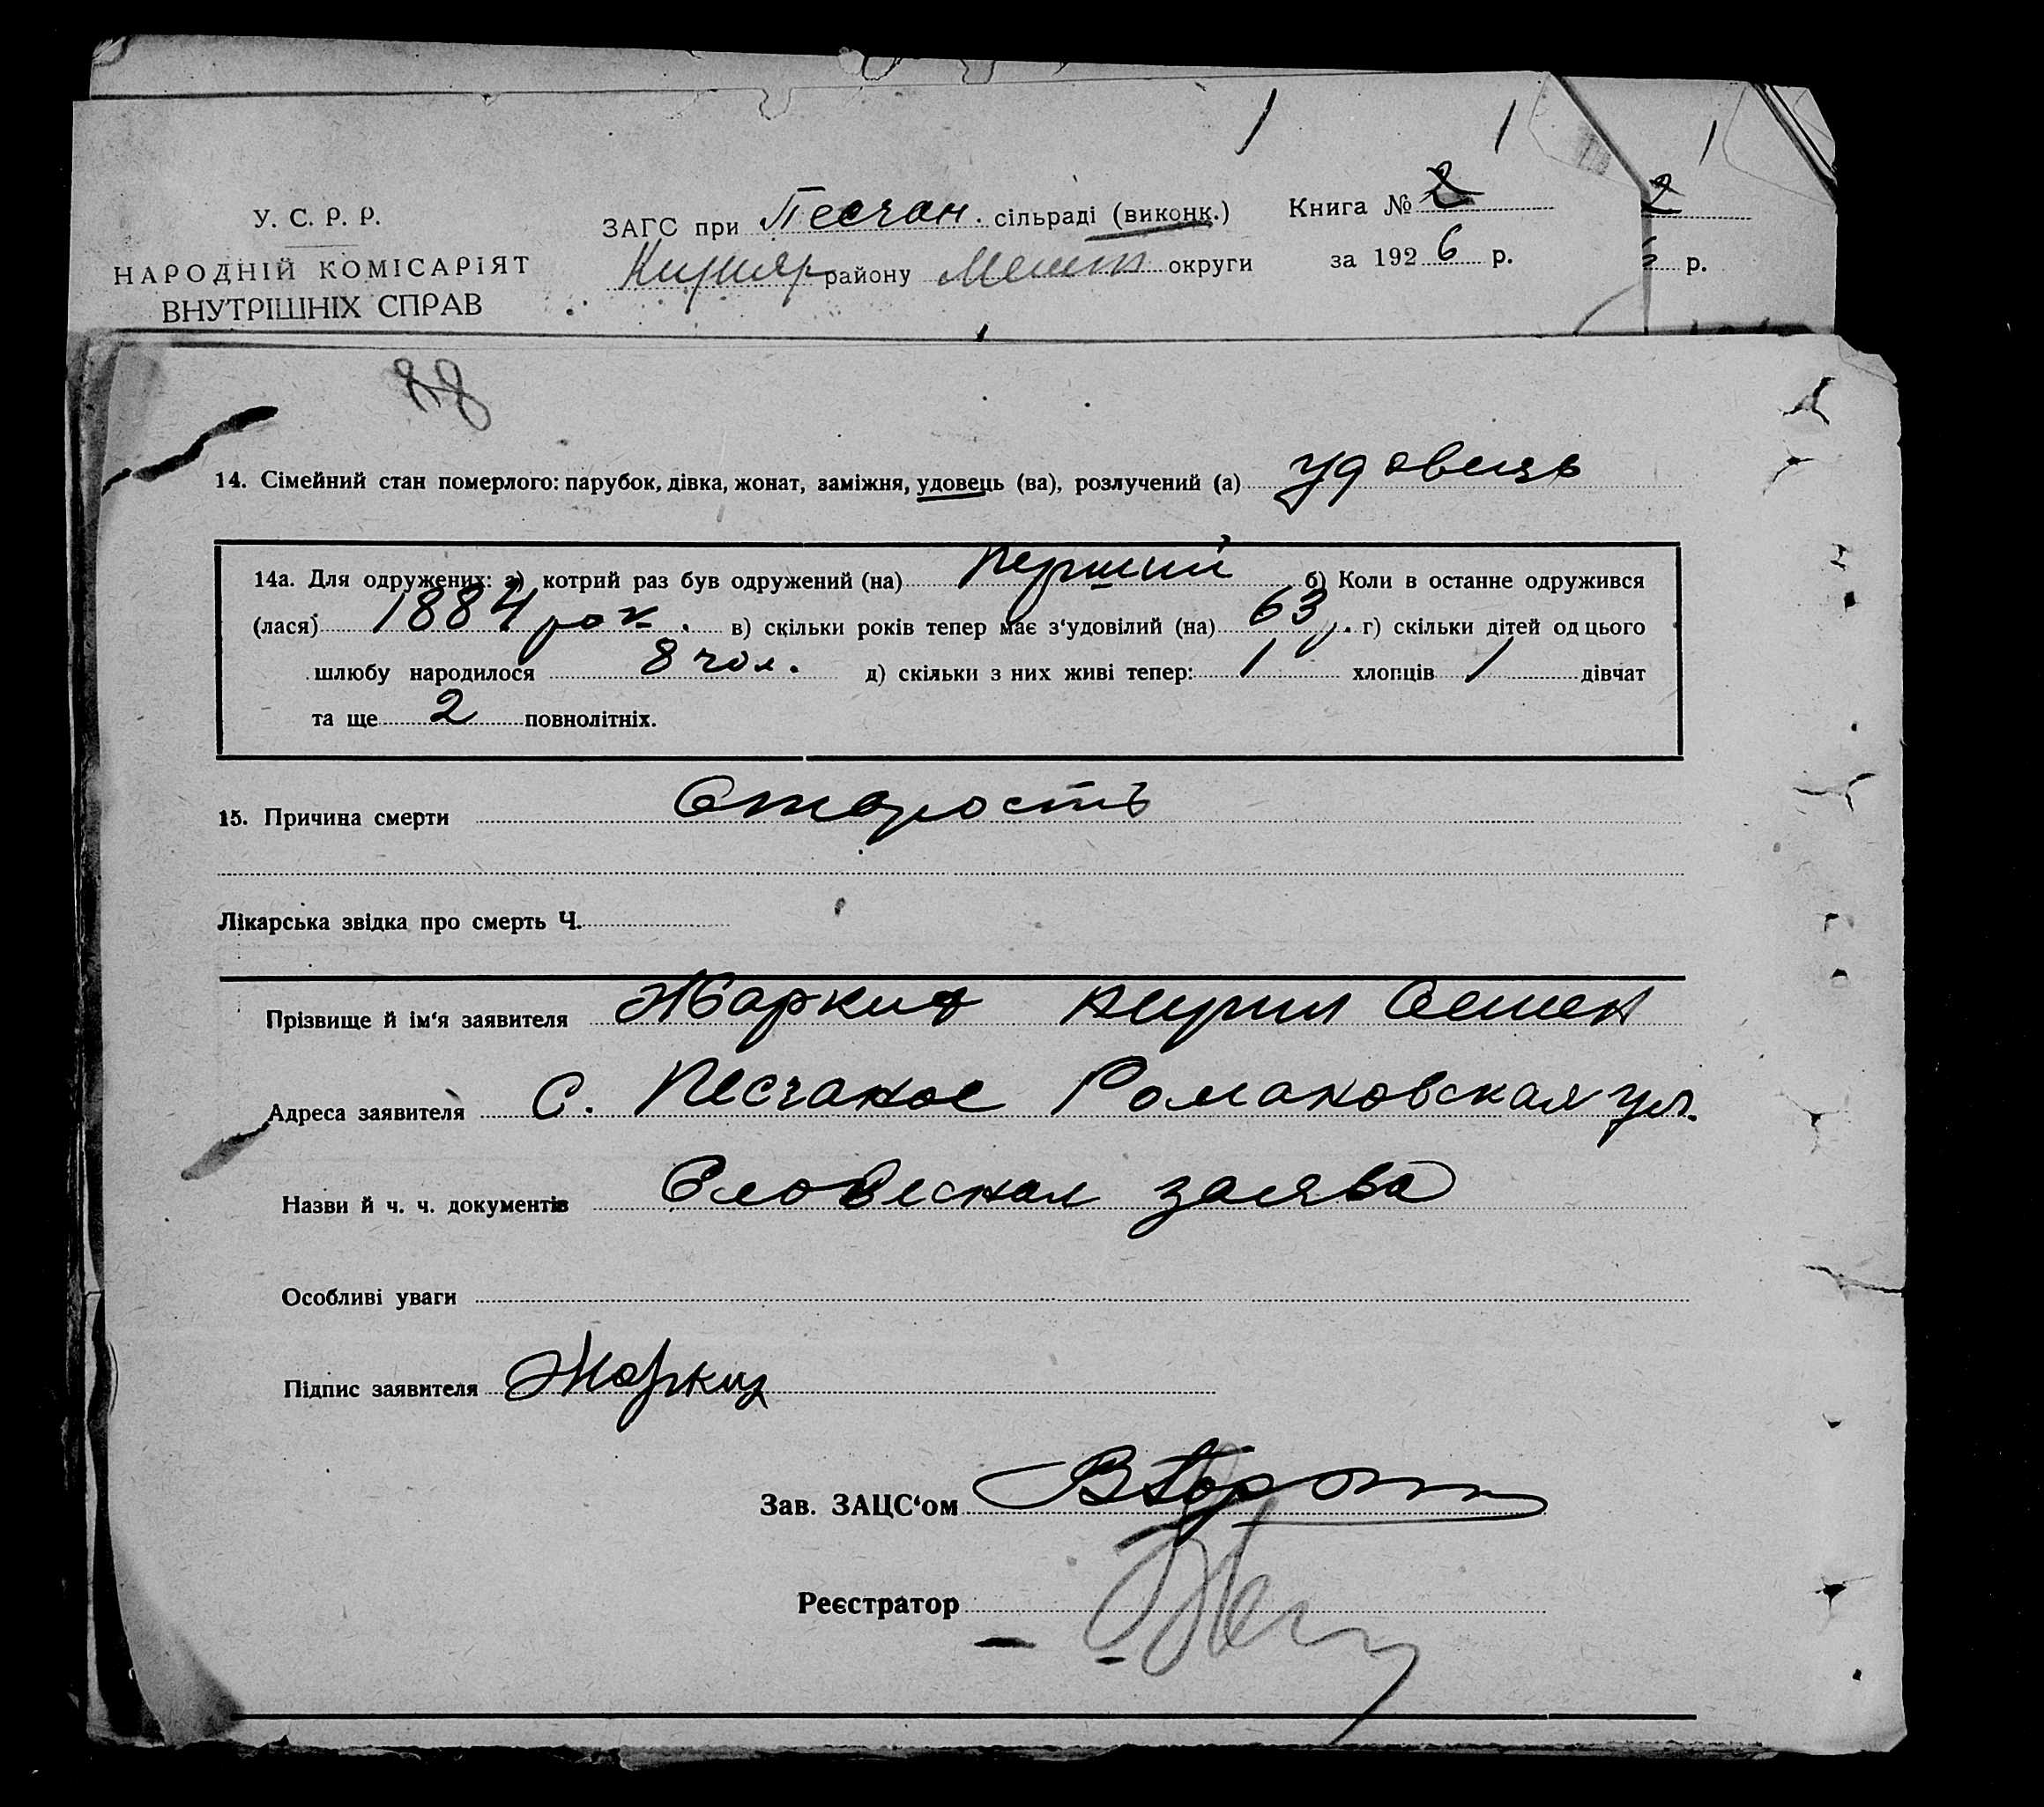 У. С. Р. Р.
НАРОДНІЙ КОМІСАРІЯТ
ВНУТРІШНІХ СПРАВ
1 1 1
ЗАГС при Песчан. сільраді (виконк.) Книга № 2
2
району Мелит округи за 1926 р.
р.
14. Сімейний стан померлого: парубок, дівка, жонат, заміжня, удовець (ва), розлучений (а) удовець
14а. Для одружених: а) котрий раз був одружений (на) перший б) Коли в останне одружився
(лася) 1884 рок. в) скільки років тепер має з‘удовілий (на) 63 г) скільки дітей од цього
шлюбу народилося 8 чол. д) скільки з них живі тепер: 1 хлопців 1 дівчат
та ще 2 повнолітніх.
15. Причина смерти Старость
Лікарська звідка про смерть Ч.
Прізвище й ім‘я заявителя Кирил Семен
Адреса заявителя С. Песчаное Романовская ул.
Назви й ч. ч. документів Словесная заява
Особливі уваги
Підпис заявителя
Зав. ЗАЦС‘ом
Реєстратор